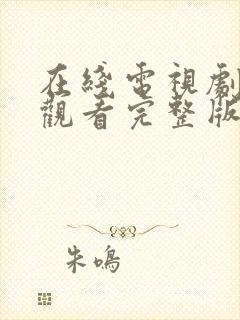 在綫電視劇
觀看完整版
朱鳴